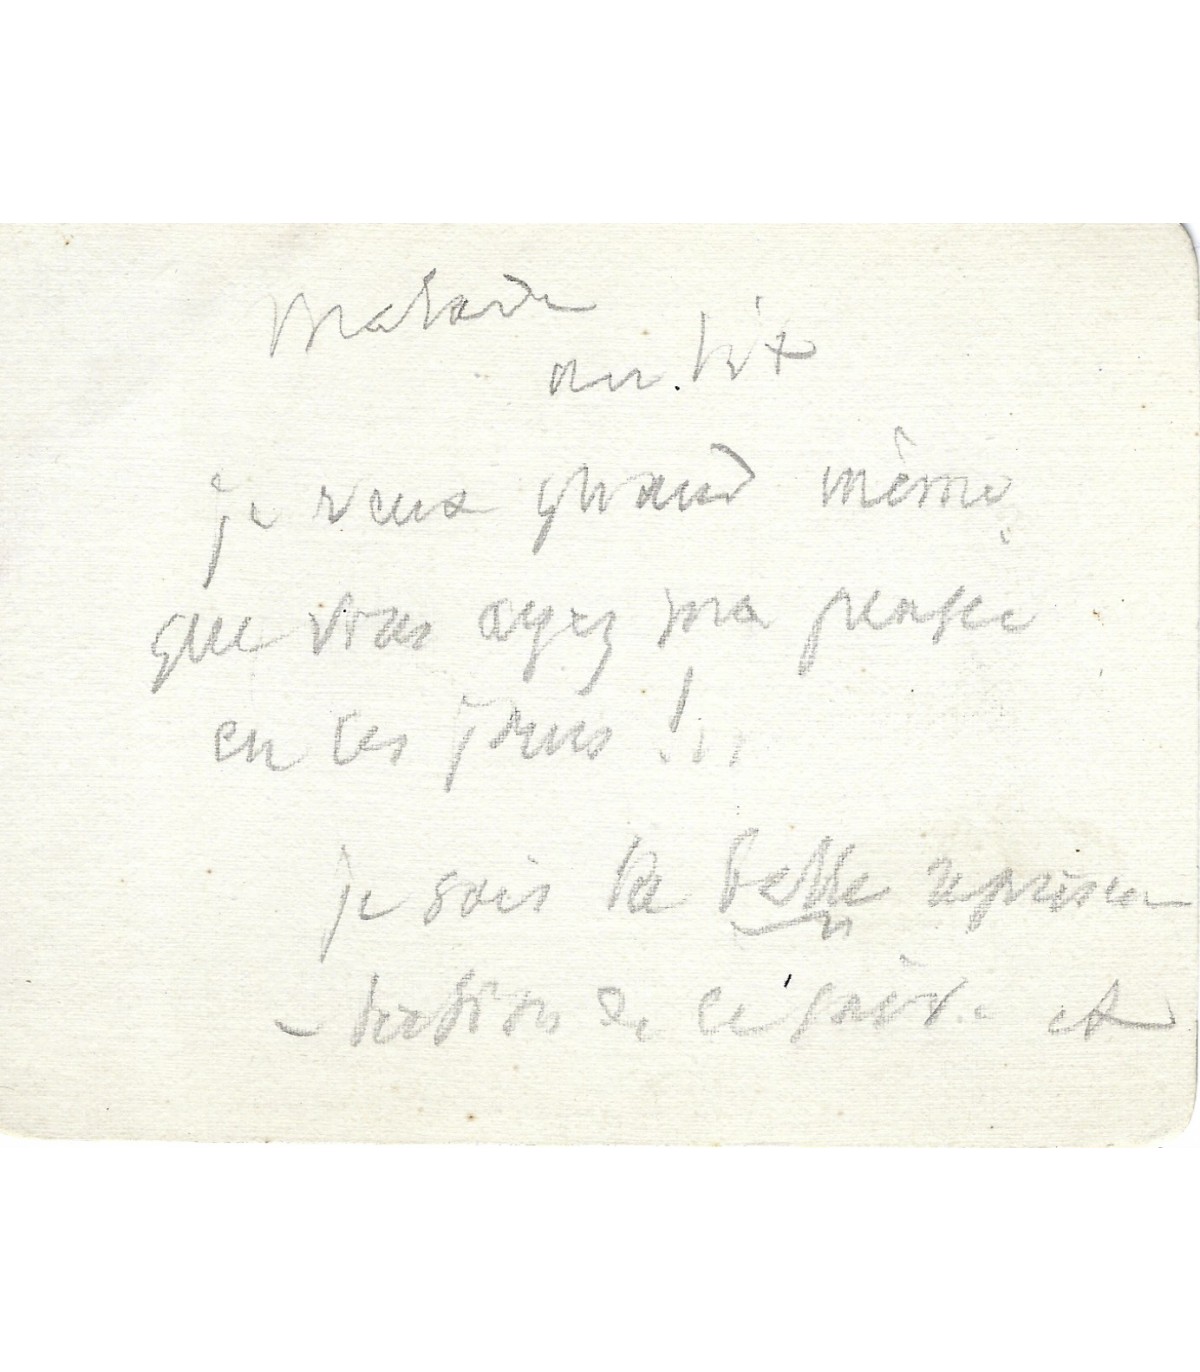 Malade
au lit
je veux quand même
que vous ayez ma pensée
en ces jours !..
je sais la belle représen
-tation de ce et